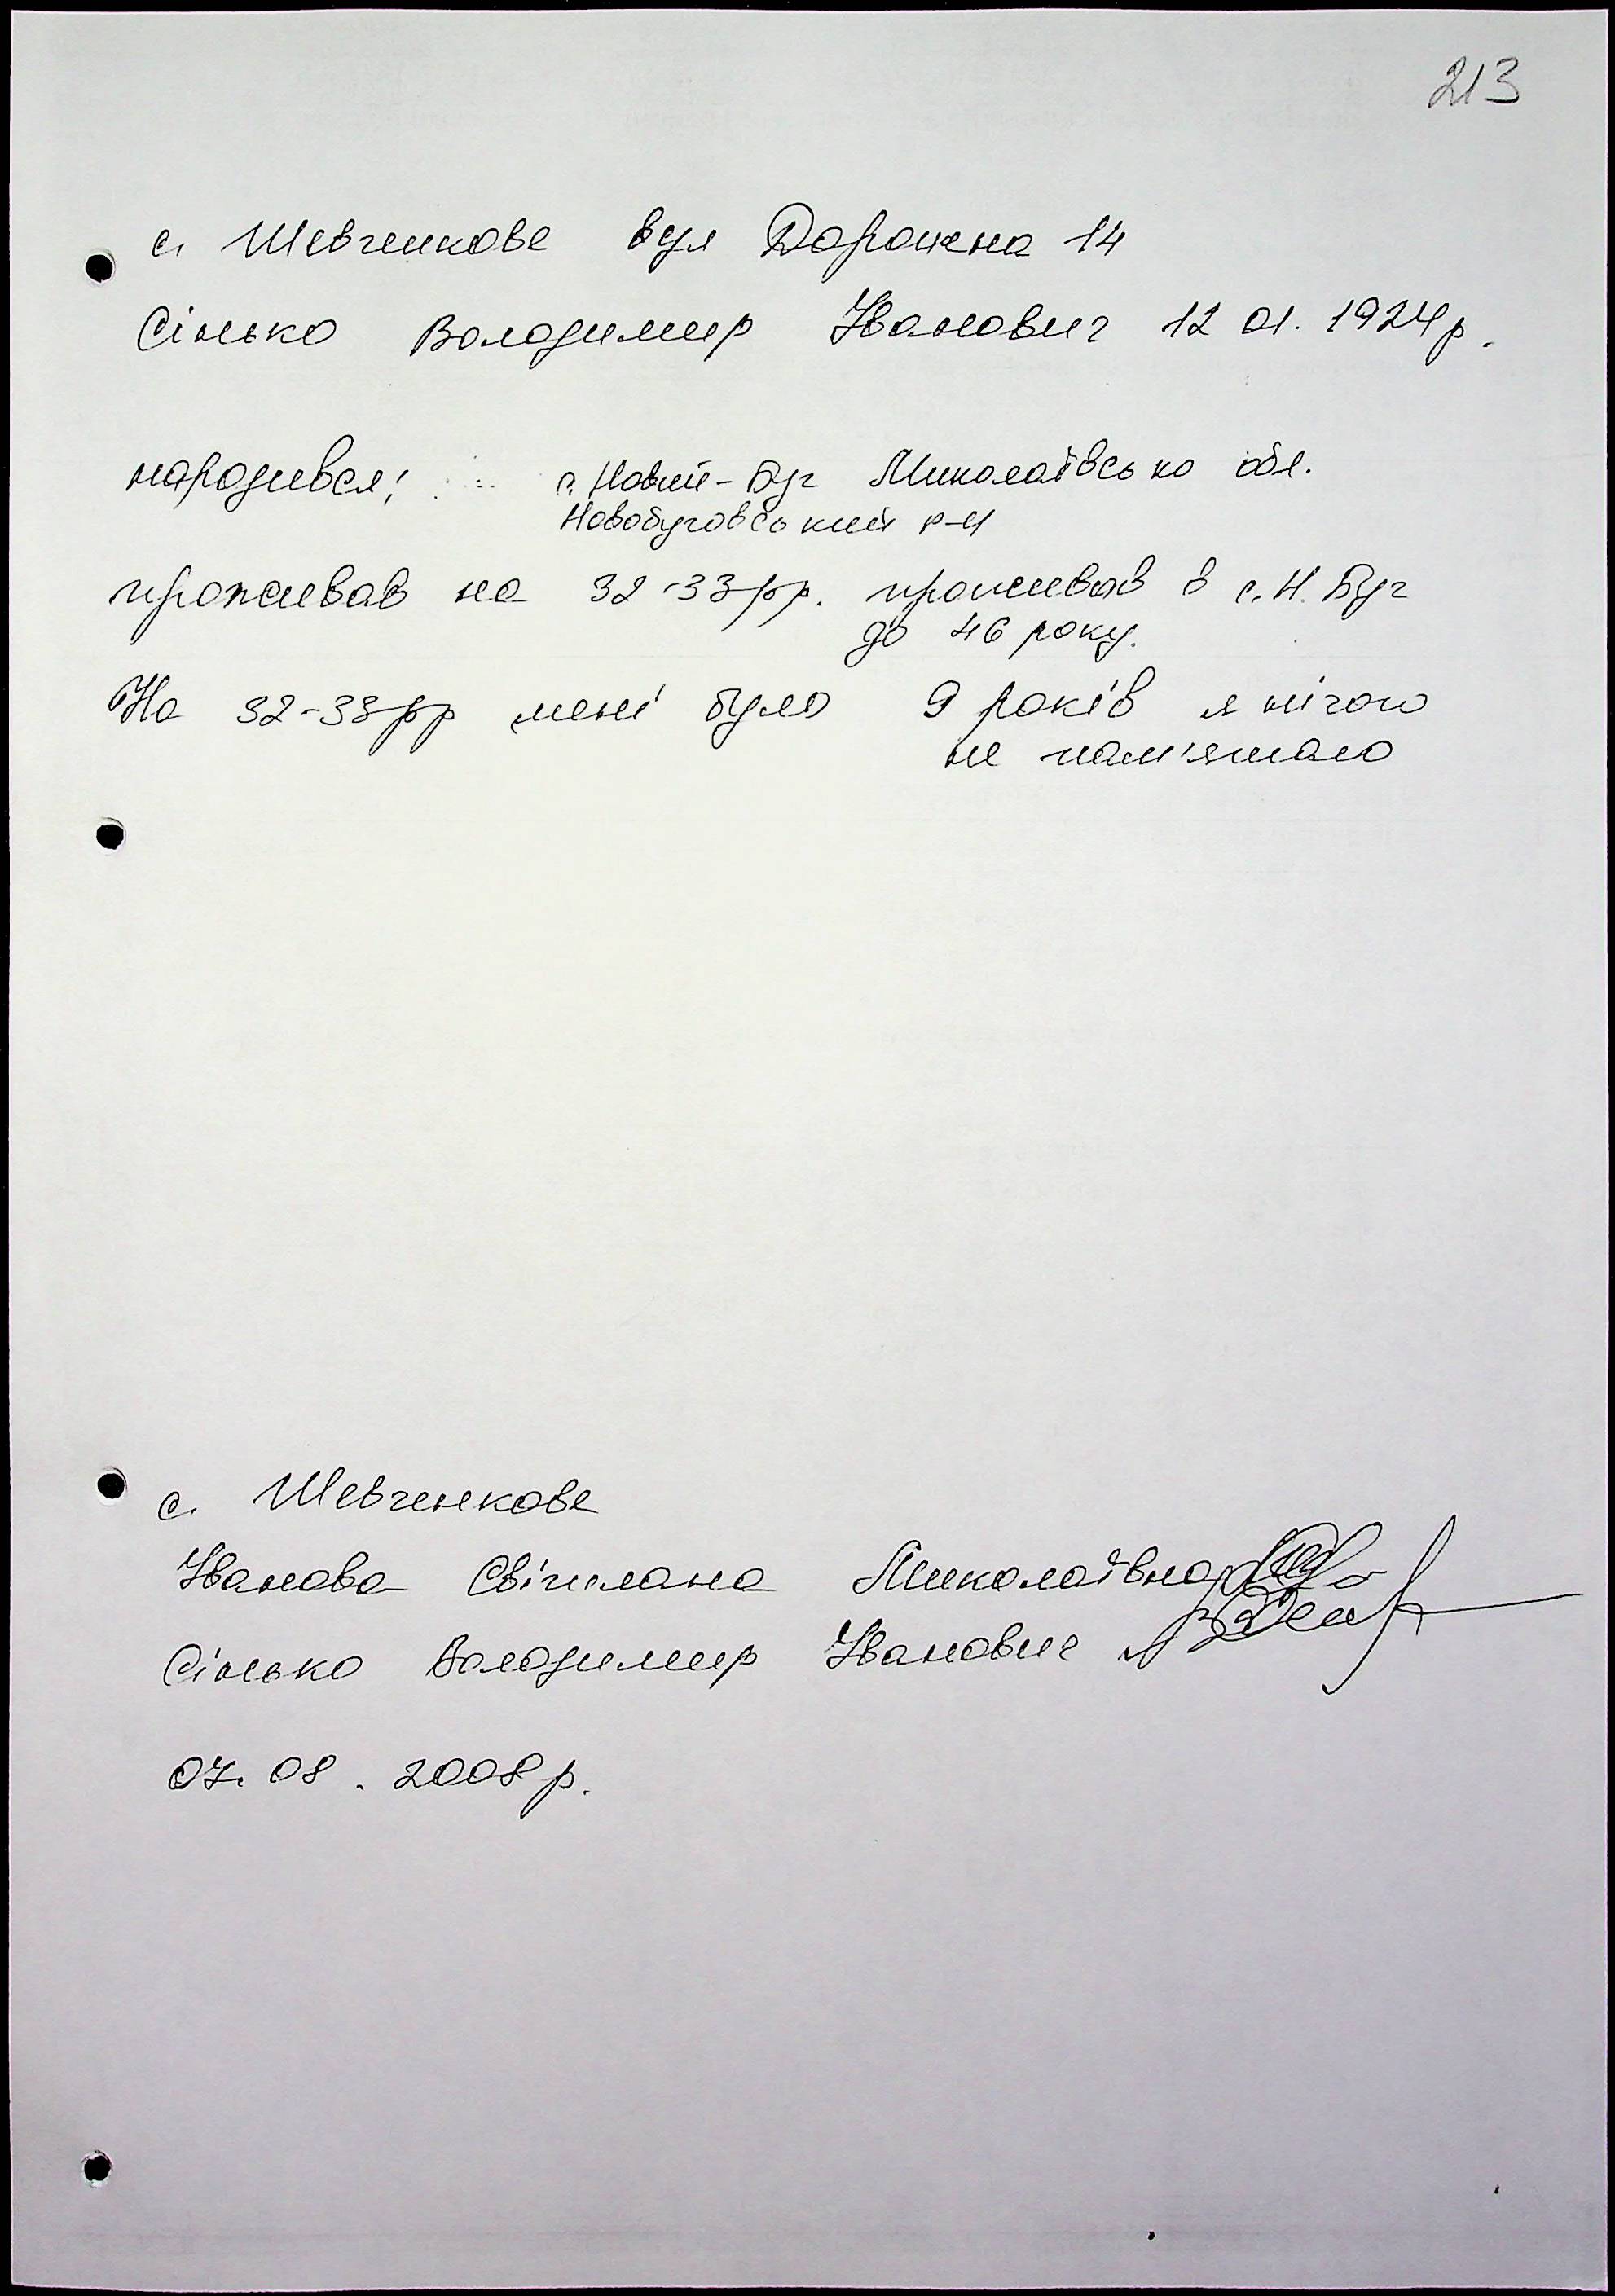 213
с. Шевченкове вул Дорожна 14
Сінько Володимир Іванович 12 01. 1924р.
народився; с. Новий-Буг Миколаївсько обл.
Новобуговський р-н
проживав на 32-33рр. проживав в с. Н. Буг
до 46 року.
На 32-33рр мені було 9 років я нічого
не пам'ятаю
с. Шевченкове
Іванова Світлана Миколаївна
Сінько Володимир Іванович
07. 08. 2008р.